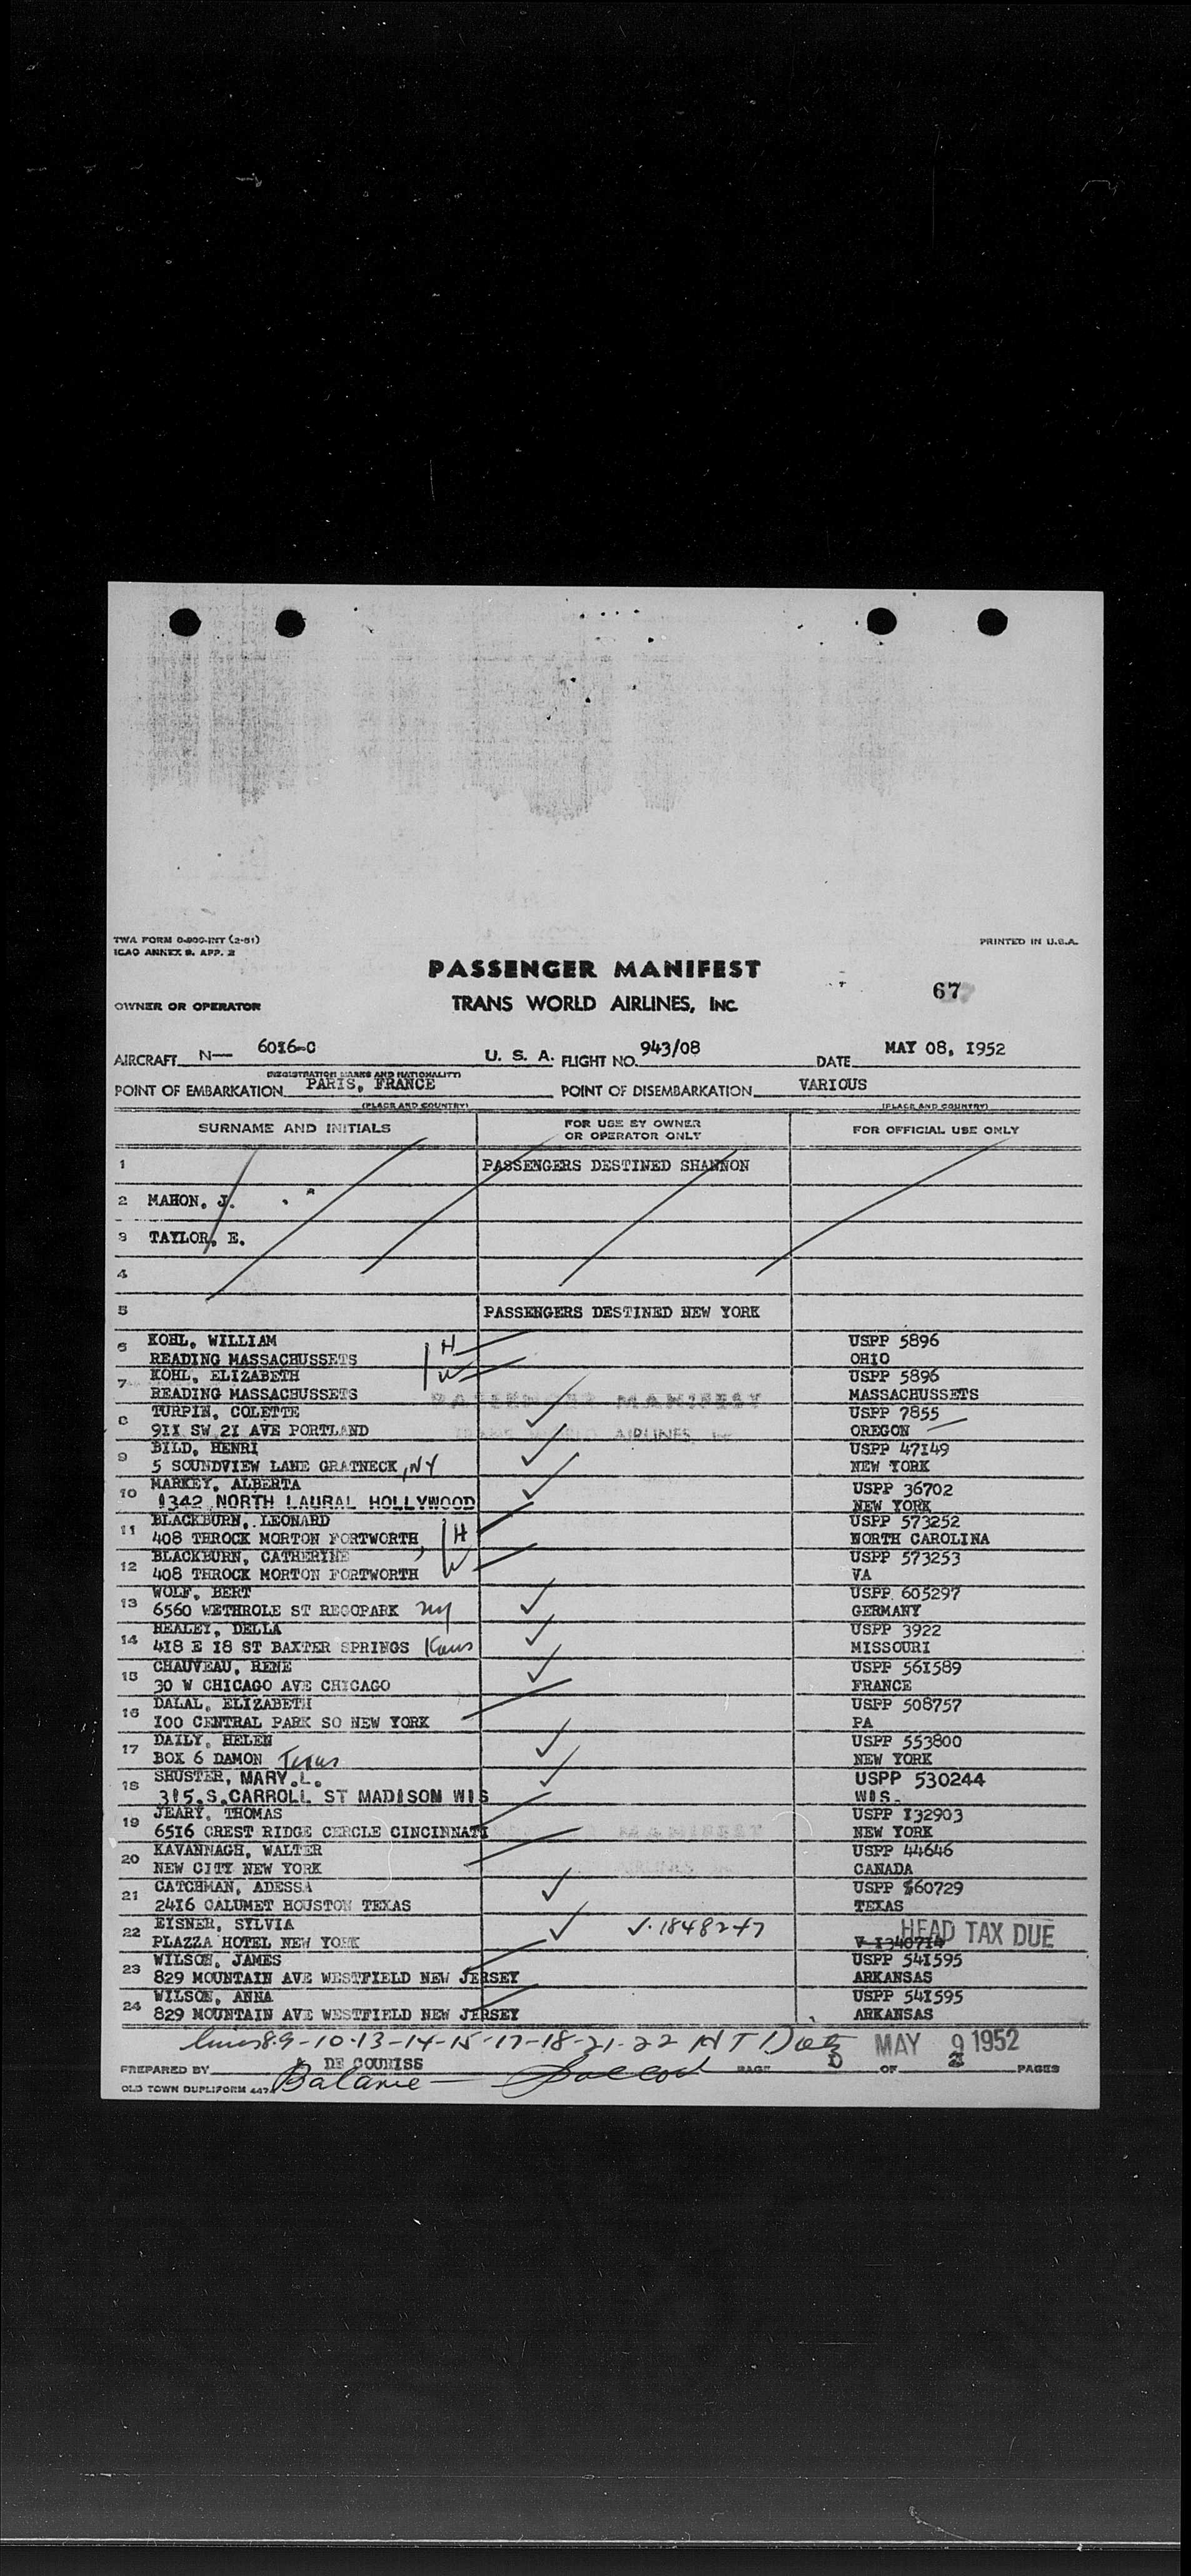 TWA FORM 0-900-INT (2-51)
ICAO ANNEX 9. APP. 2
PRINTED IN U.S.A.
PASSENGER MANIFEST
67
OWNER OR OPERATOR TRANS WORLD AIRLINES, INC.
AIRCRAFT N— 6016-C U. S. A. FLIGHT NO. 943/08 DATE MAY 08, 1952
(REGISTRATION MARKS AND NATIONALITY)
POINT OF EMBARKATION PARIS, FRANCE POINT OF DISEMBARKATION VARIOUS
(PLACE AND COUNTRY) (PLACE AND COUNTRY)
SURNAME AND INITIALS FOR USE BY OWNER OR OPERATOR ONLY FOR OFFICIAL USE ONLY
1 PASSENGERS DESTINED SHANNON
2 MAHON, J.
3 TAYLOR, E.
4
5 PASSENGERS DESTINED NEW YORK
6 KOHL, WILLIAM H USPP 5896
READING MASSACHUSSETS OHIO
7 KOHL, ELIZABETH W USPP 5896
READING MASSACHUSSETS MASSACHUSSETS
8 TURPIN, COLETTE USPP 7855
911 SW 21 AVE PORTLAND OREGON
9 BILD, HENRI USPP 47149
5 SOUNDVIEW LANE GRATNECK, NY NEW YORK
10 MARKEY, ALBERTA USPP 36702
1342 NORTH LAURAL HOLLYWOOD NEW YORK
11 BLACKBURN, LEONARD H USPP 573252
408 THROCK MORTON FORTWORTH NORTH CAROLINA
12 BLACKBURN, CATHERINE W USPP 573253
408 THROCK MORTON FORTWORTH VA
13 WOLF, BERT USPP 605297
6560 WETHROLE ST REGOPARK NY GERMANY
14 HEALEY, DELLA USPP 3922
418 E 18 ST BAXTER SPRINGS Kans MISSOURI
15 CHAUVEAU, RENE USPP 561589
30 W CHICAGO AVE CHICAGO FRANCE
16 DALAL, ELIZABETH USPP 508757
100 CENTRAL PARK SO NEW YORK PA
17 DAILY, HELEN USPP 553800
BOX 6 DAMON Texas NEW YORK
18 SHUSTER, MARY.L. USPP 530244
315.S.CARROLL ST MADISON WIS WIS.
19 JEARY, THOMAS USPP 132903
6516 CREST RIDGE CERCLE CINCINNATI NEW YORK
20 KAVANNAGH, WALTER USPP 44646
NEW CITY NEW YORK CANADA
21 CATCHMAN, ADESSA USPP 560729
2416 CALUMET HOUSTON TEXAS TEXAS
22 EISNER, SYLVIA V. 1848247 HEAD TAX DUE
PLAZZA HOTEL NEW YORK V 1340714
23 WILSON, JAMES USPP 541595
829 MOUNTAIN AVE WESTFIELD NEW JERSEY ARKANSAS
24 WILSON, ANNA USPP 541595
829 MOUNTAIN AVE WESTFIELD NEW JERSEY ARKANSAS
Lines 8-9-10-13-14-15-17-18-21-22 H T MAY 9 1952
PREPARED BY DE COURISS PAGE OF 2 PAGES
OLD TOWN DUPLIFORM